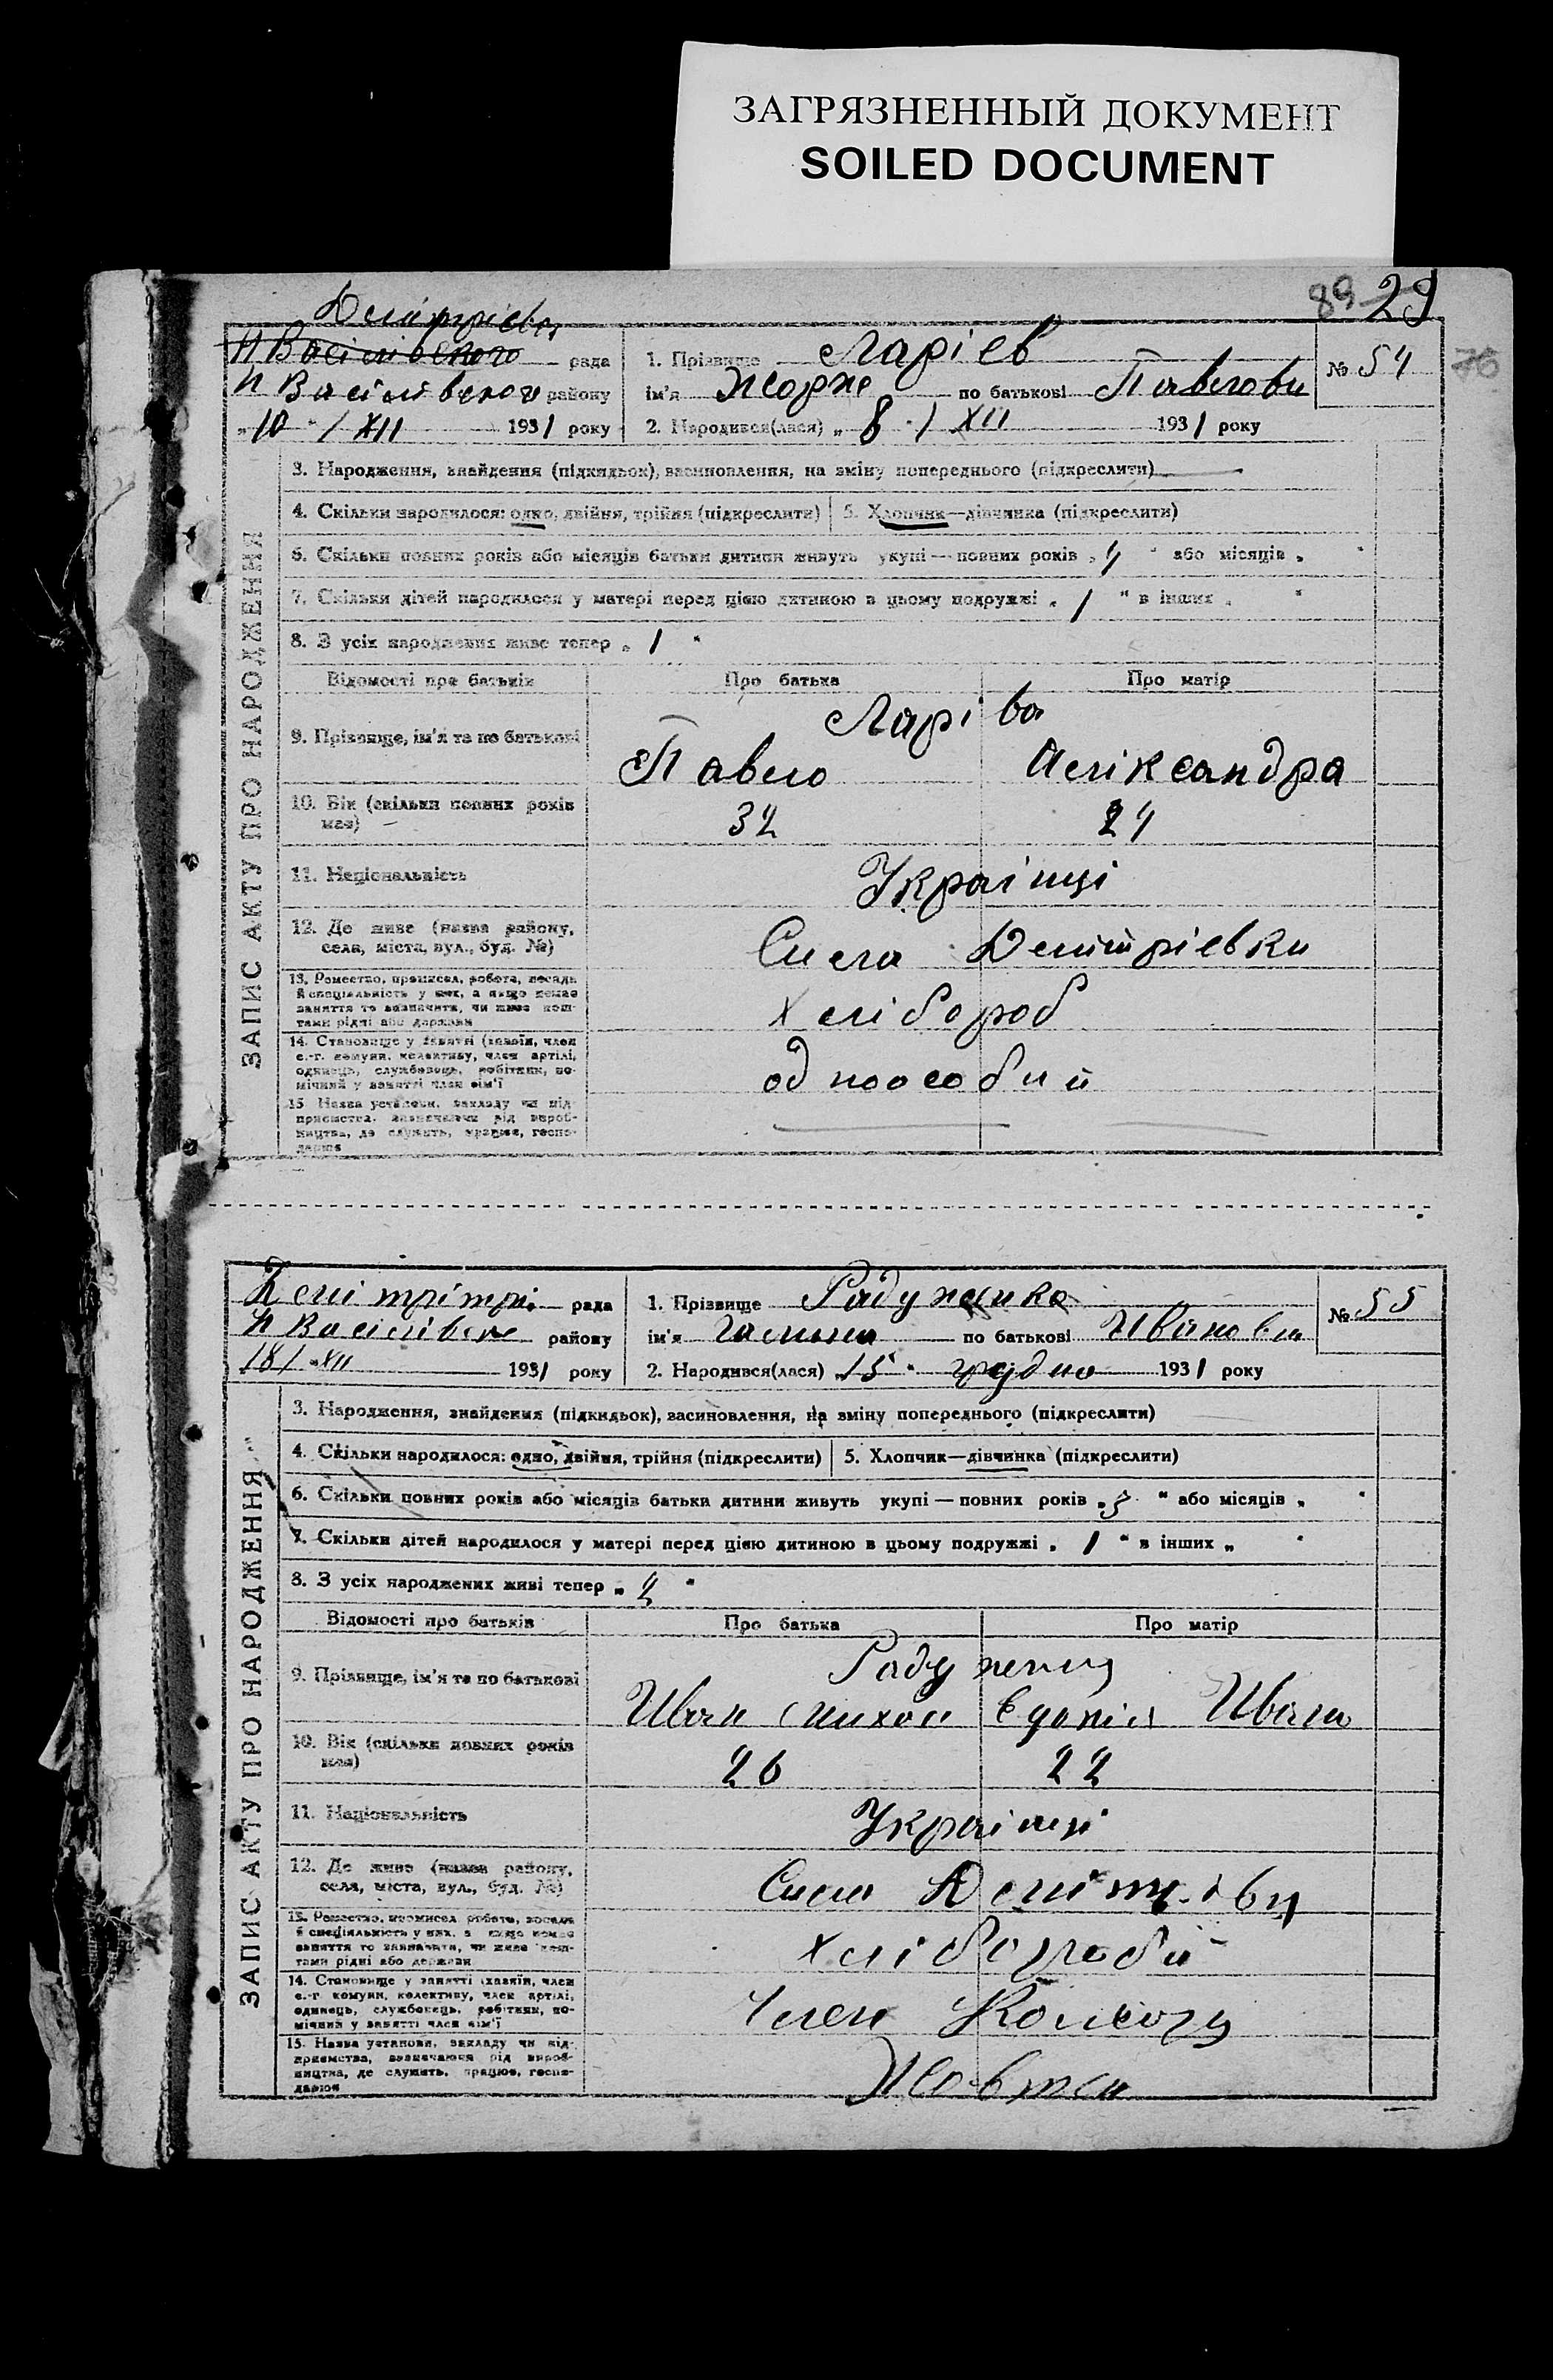 ЗАГРЯЗНЕННЫЙ ДОКУМЕНТ
SOILED DOCUMENT
89 29
76
рада
району
"10" / XII 1931 року
1. Прізвище Ларієв
ім'я Жорже по батькові Павлови
2. Народився(лася) "8" / XII 1931 року
№ 54
ЗАПИС АКТУ ПРО НАРОДЖЕННЯ
3. Народження, знайдення (підкидьок), засиновлення, на зміну попереднього (підкреслити)
4. Скільки народилося: одно, двійня, трійня (підкреслити) 5. Хлопчик—дівчинка (підкреслити)
6. Скільки повних років або місяців батьки дитини живуть укупі — повних років „ 4 " або місяців „ "
7. Скільки дітей народилося у матері перед цією дитиною в цьому подружжі „ 1 " в інших „ "
8. З усіх народжених живе тепер „ 1 "
Відомості про батьків Про батька Про матір
9. Прізвище, ім'я та по батькові
Ларіва
Павло Аліксандра
10. Вік (скільки повних років має)
32 24
11. Національність
Україці
12. Де живе (назва району, села, міста, вул., буд. №)
Сила Демітрієвки
13. Ремество, промисел, робота, посада й спеціяльність у них, а якщо немає заняття то зазначити, чи живе коштами рідні або держави
Хлібороб
14. Становище у занятті (хазяїн, член с.-г. комуни, колективу, член артілі, одинець, службовець, робітник, помічний у занятті член сім'ї
одноособий
15. Назва установи, закладу чи підприємства, зазначаючи рід виробництва, де служить, працює, господарює
рада
району
18 / XII 1931 року
1. Прізвище
ім'я Галина по батькові Ивановна
2. Народився(лася) „15" грудня 1931 року
№ 55
ЗАПИС АКТУ ПРО НАРОДЖЕННЯ
3. Народження, знайдення (підкидьок), засиновлення, на зміну попереднього (підкреслити)
4. Скільки народилося: одно, двійня, трійня (підкреслити) 5. Хлопчик—дівчинка (підкреслити)
6. Скільки повних років або місяців батьки дитини живуть укупі — повних років „ 3 " або місяців „ "
7. Скільки дітей народилося у матері перед цією дитиною в цьому подружжі „ 1 " в інших „ "
8. З усіх народжених живі тепер „ 2 "
Відомості про батьків Про батька Про матір
9. Прізвище, ім'я та по батькові
Иван Михол Ивано
10. Вік (скільки повних років має)
26 22
11. Національність
Україці
12. Де живе (назва району, села, міста, вул., буд. №)
Сило
13. Ремество, промисел, робота, посада й спеціяльність у них, а якщо немає заняття то зазначити, чи живе коштами рідні або держави
хлібороби
14. Становище у занятті (хазяїн, член с.-г. комуни, колективу, член артілі, одинець, службовець, робітник, помічний у занятті член сім'ї
Член Колхозу
15. Назва установи, закладу чи підприємства, зазначаючи рід виробництва, де служить, працює, господарює